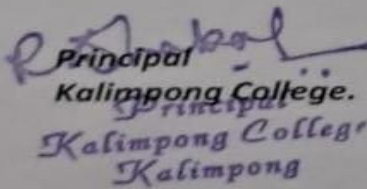 Principal
Kalimpong College.
Principal
Kalimpong College
Kalimpong